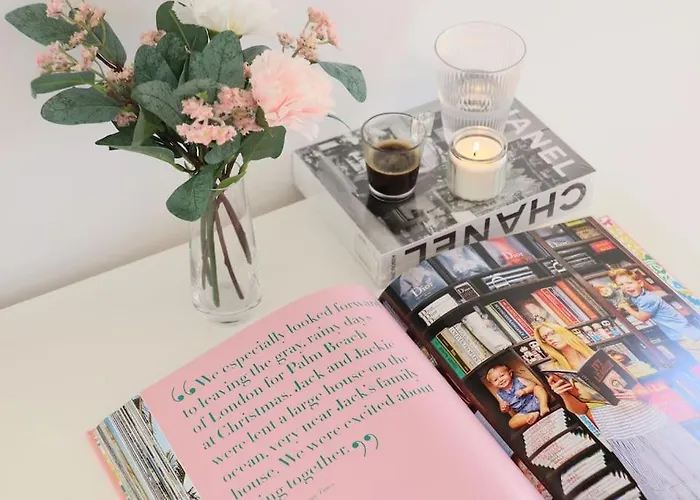 CHANEL
CHANEL
Dior
Dior
“We especially looked forward
to leaving the gray, rainy days
of London for Palm Beach
at Christmas. Jack and Jackie
were lent a large house on the
ocean, very near Jack's family
house. We were excited about
ing together.”